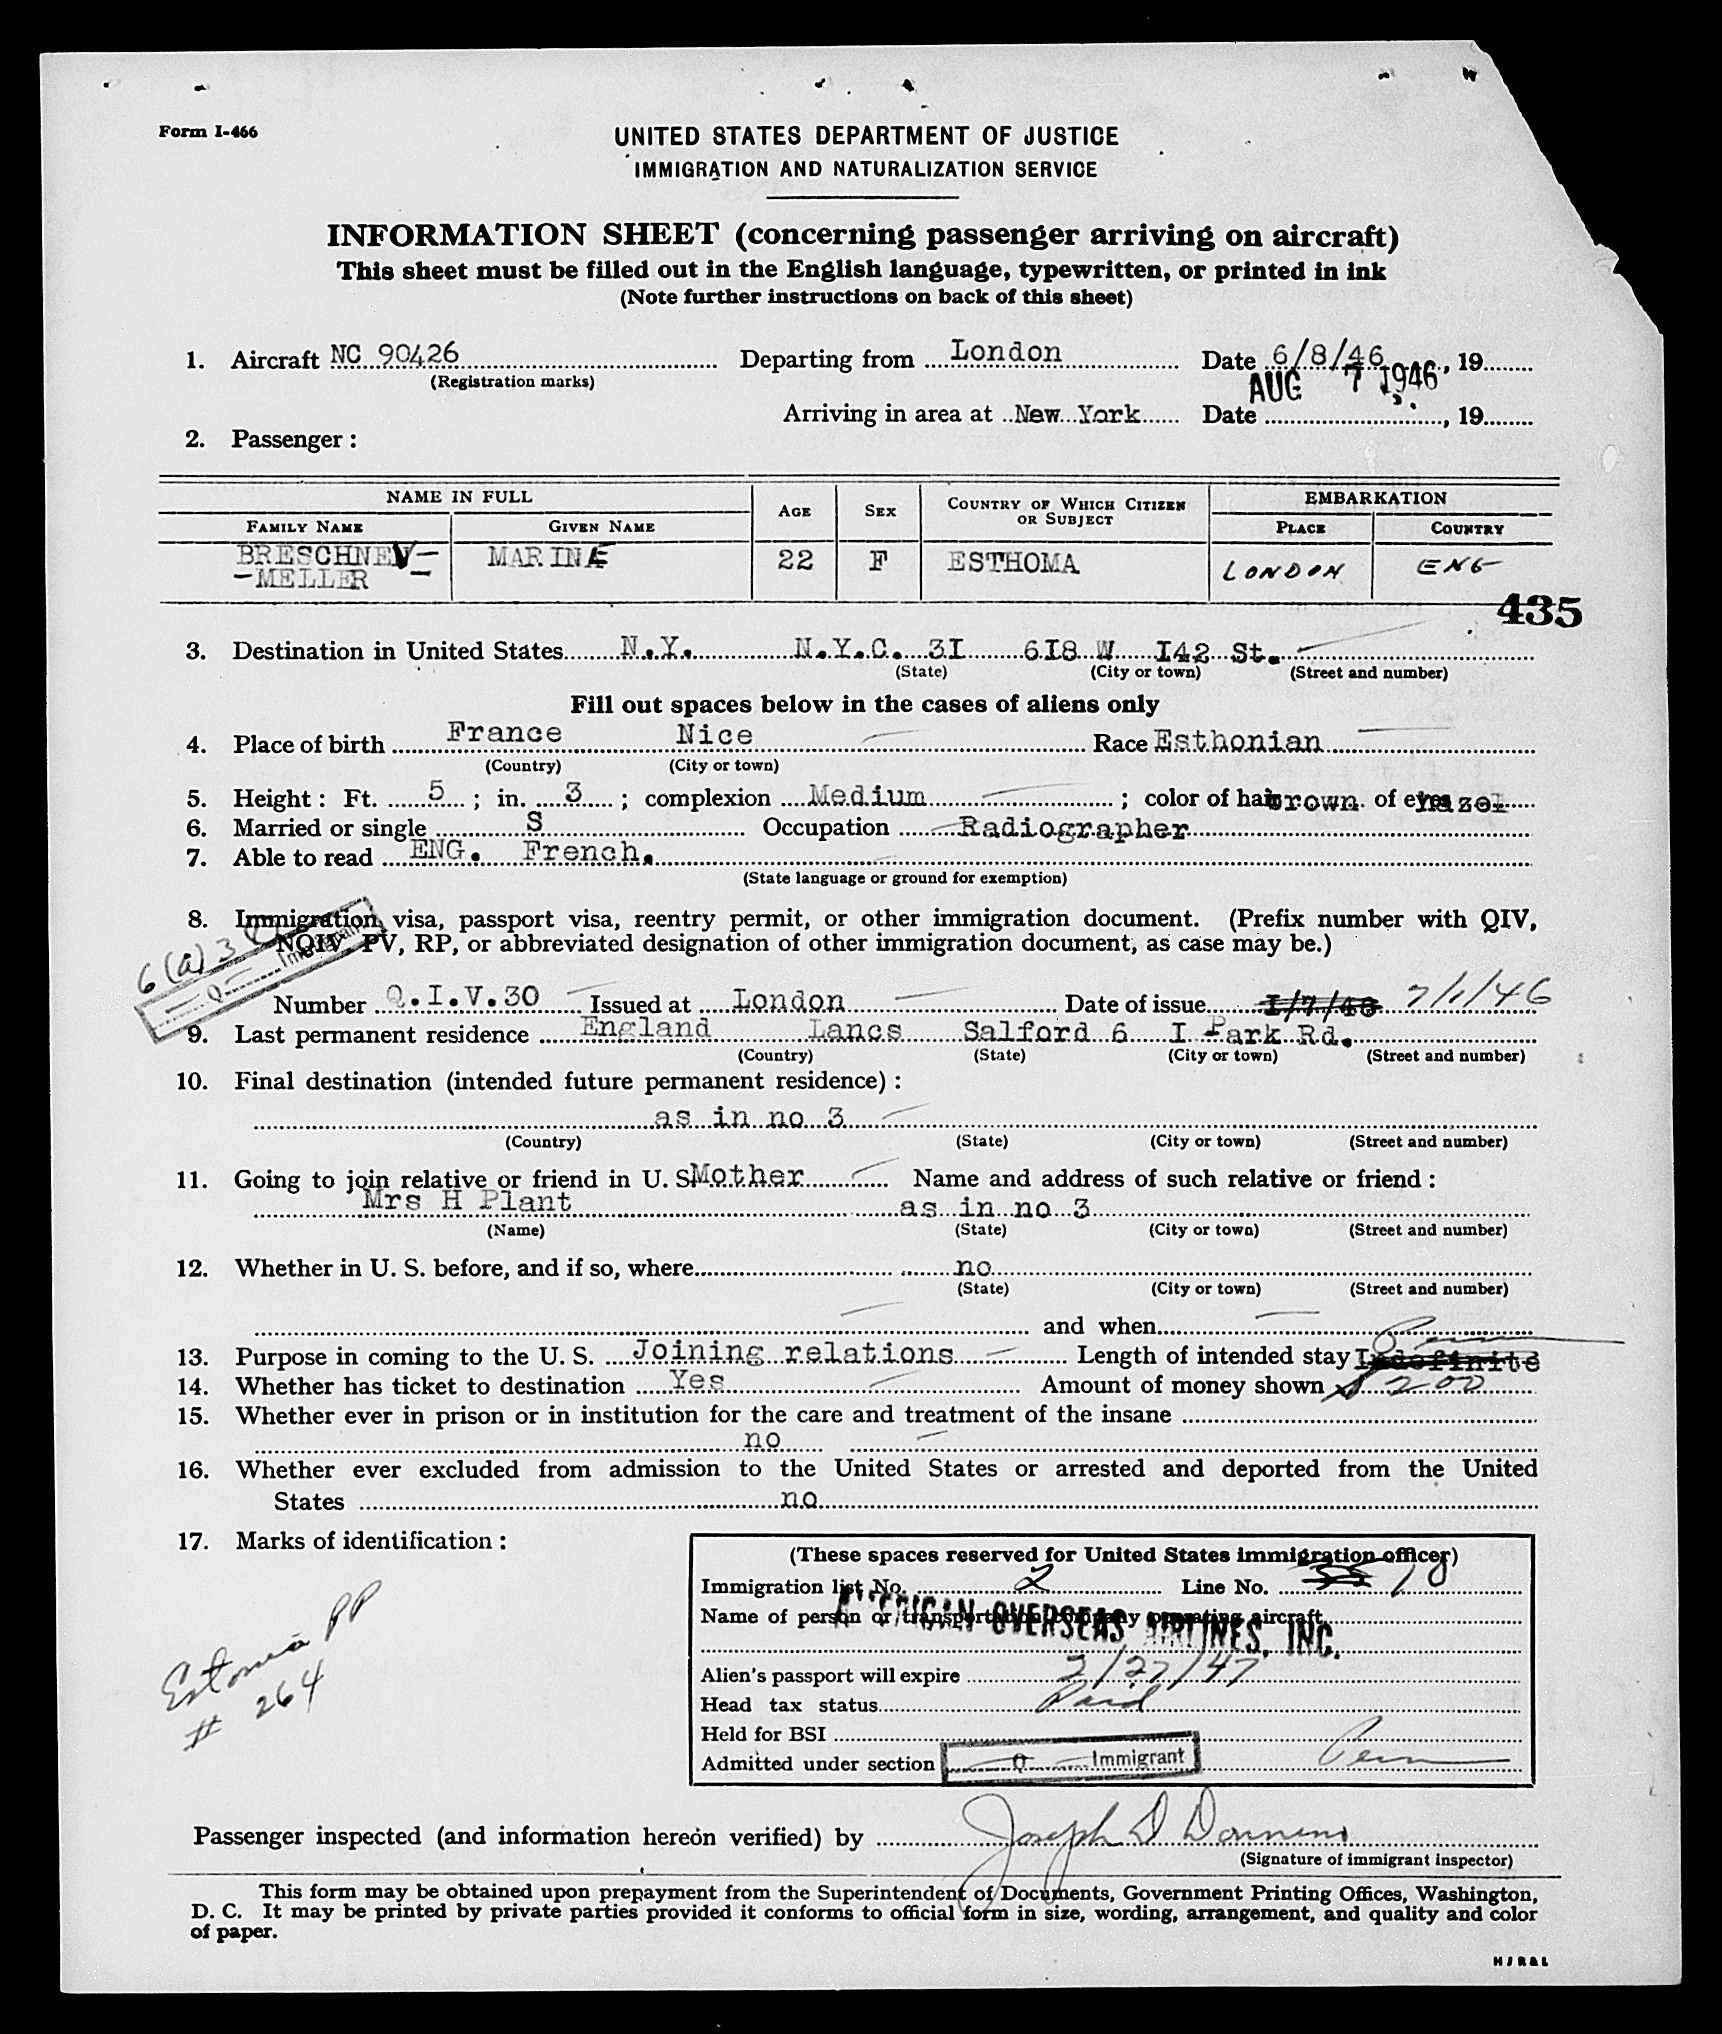 Form I-466
UNITED STATES DEPARTMENT OF JUSTICE
IMMIGRATION AND NATURALIZATION SERVICE
INFORMATION SHEET (concerning passenger arriving on aircraft)
This sheet must be filled out in the English language, typewritten, or printed in ink
(Note further instructions on back of this sheet)
1. Aircraft NC 90426 Departing from London Date 6/8/46, 19
(Registration marks) AUG 7 1946
Arriving in area at New York Date , 19
2. Passenger :
NAME IN FULL AGE SEX COUNTRY OF WHICH CITIZEN OR SUBJECT EMBARKATION
FAMILY NAME GIVEN NAME PLACE COUNTRY
BRESCHNEV- MARINE 22 F ESTHOMA LONDON ENG
-MELLER -
435
3. Destination in United States N.Y. N.Y.C. 3I 6I8 W I42 St.
(State) (City or town) (Street and number)
Fill out spaces below in the cases of aliens only
4. Place of birth France Nice Race Esthonian
(Country) (City or town)
5. Height : Ft. 5 ; in. 3 ; complexion Medium ; color of hair brown of eyes hazel
6. Married or single S Occupation Radiographer
7. Able to read ENG. French.
(State language or ground for exemption)
8. Immigration visa, passport visa, reentry permit, or other immigration document. (Prefix number with QIV,
NQIV PV, RP, or abbreviated designation of other immigration document, as case may be.)
6(a)3
Q Immigrant
Number Q.I.V.30 Issued at London Date of issue I/7/46 7/1/46
9. Last permanent residence England Lancs Salford 6 I Park Rd.
(Country) (State) (City or town) (Street and number)
10. Final destination (intended future permanent residence) :
as in no 3
(Country) (State) (City or town) (Street and number)
11. Going to join relative or friend in U. S. Mother Name and address of such relative or friend :
Mrs H Plant as in no 3
(Name) (State) (City or town) (Street and number)
12. Whether in U. S. before, and if so, where no
(State) (City or town) (Street and number)
and when
13. Purpose in coming to the U. S. Joining relations Length of intended stay Indefinite
14. Whether has ticket to destination Yes Amount of money shown $ 200
15. Whether ever in prison or in institution for the care and treatment of the insane
no
16. Whether ever excluded from admission to the United States or arrested and deported from the United
States no
17. Marks of identification :
Estonia PP
# 264
(These spaces reserved for United States immigration officer)
Immigration list No. 2 Line No. 35 10
Name of person or transportation company operating aircraft
AMERICAN OVERSEAS AIRLINES, INC.
Alien's passport will expire 2/27/47
Head tax status Paid
Held for BSI
Admitted under section Q Immigrant
Passenger inspected (and information hereon verified) by Joseph D
(Signature of immigrant inspector)
This form may be obtained upon prepayment from the Superintendent of Documents, Government Printing Offices, Washington,
D. C. It may be printed by private parties provided it conforms to official form in size, wording, arrangement, and quality and color
of paper.